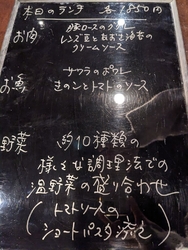 本日のランチ 各1,850円
お肉 豚ロースのグリル
レンズ豆とあおさ海苔の
クリームソース
お魚 サワラのポワレ
きのことトマトのソース
野菜 約10種類の
様々な調理法での
温野菜の盛り合わせ
(トマトソースの
ショートパスタ添え)